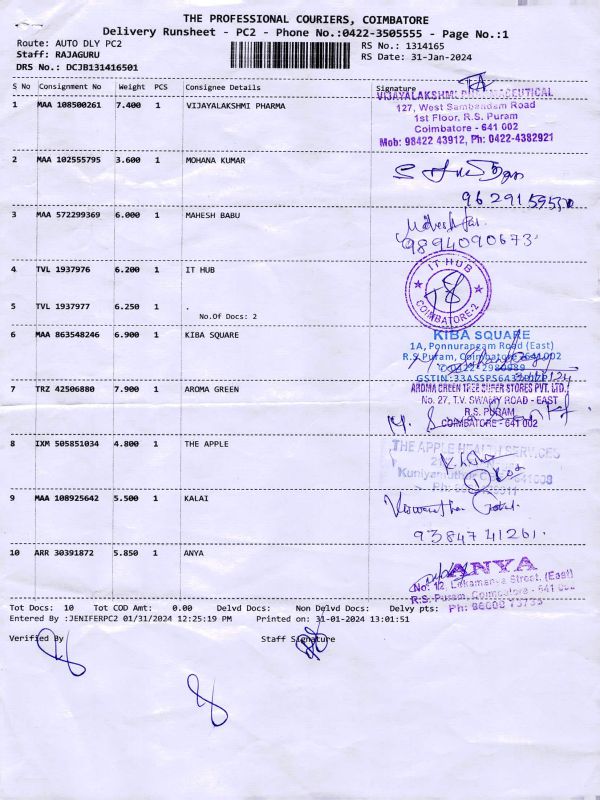 THE PROFESSIONAL COURIERS, COIMBATORE
Delivery Runsheet - PC2 - Phone No.:0422-3505555 - Page No.:1
Route: AUTO DLY PC2
RS No.: 1314165
Staff: RAJAGURU
RS Date: 31-Jan-2024
DRS No.: DCJB131416501
S No Consignment No Weight PCS Consignee Details Signature
1 MAA 108500261 7.400 1 VIJAYALAKSHMI PHARMA
VIJAYALAKSHMI
127, West Sambandam Road
1st Floor, R.S. Puram
Coimbatore - 641 002
Mob: 98422 43912, Ph: 0422-4382921
2 MAA 102555795 3.600 1 MOHANA KUMAR
3 MAA 572299369 6.000 1 MAHESH BABU
9894090673
4 TVL 1937976 6.200 1 IT HUB
IT HUB
COIMBATORE-2
5 TVL 1937977 6.250 1 .
No.Of Docs: 2
6 MAA 863548246 6.900 1 KIBA SQUARE
KIBA SQUARE
1A, Ponnurangam Road (East)
R.S.Puram, Coimbatore-641 002
7 TRZ 42506880 7.900 1 AROMA GREEN
AROMA GREEN TREE SUPER STORES PVT. LTD.
No. 27, T.V. SWAMY ROAD - EAST
R.S. PURAM
COIMBATORE - 641 002
8 IXM 505851034 4.800 1 THE APPLE
THE APPLE
9 MAA 108925642 5.500 1 KALAI
9384741261.
10 ARR 30391872 5.850 1 ANYA
ANYA
No: 12, Lokamanya Street, (East)
R.S. Puram, Coimbatore - 641
Tot Docs: 10 Tot COD Amt: 0.00 Delvd Docs: Non Delvd Docs: Delvy pts:
Entered By :JENIFERPC2 01/31/2024 12:25:19 PM Printed on: 31-01-2024 13:01:51
Verified By Staff Signature